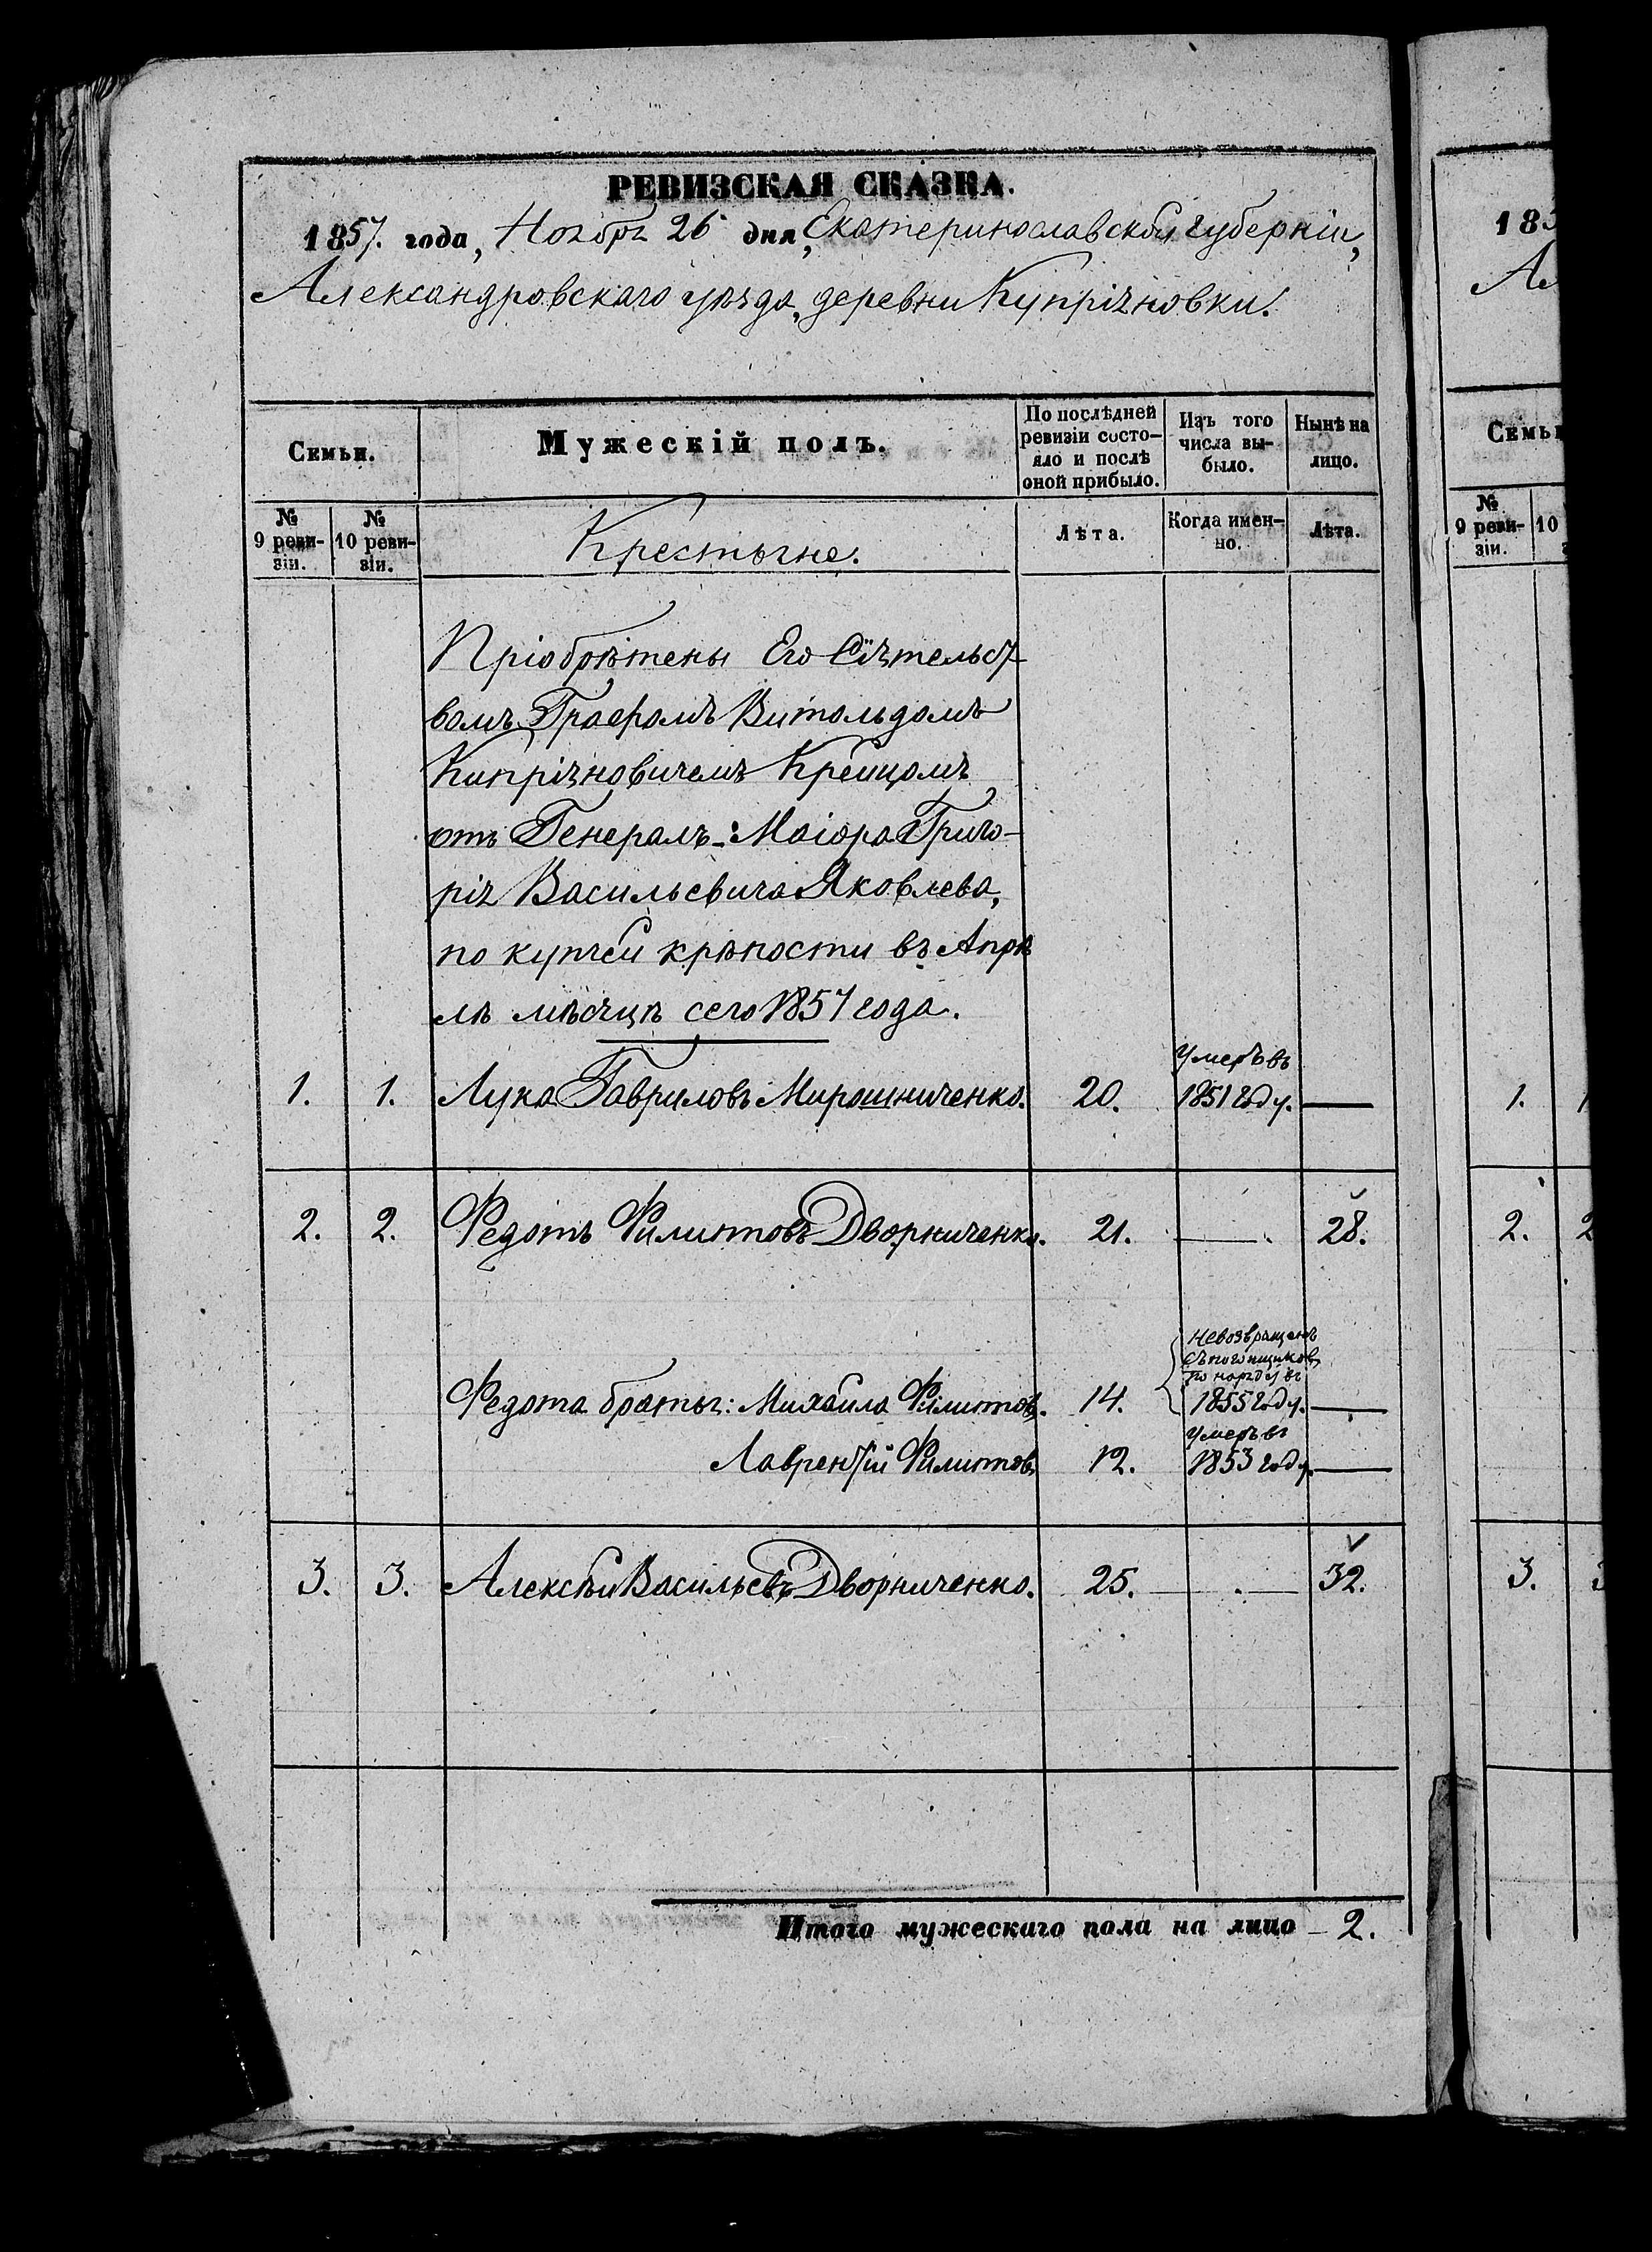 РЕВИЗСКАЯ СКАЗКА.
1857. года, Ноября 26 дня, Екатеринославской губерніи,
Александровскаго уѣзда, деревни Купріяновки.
Семьи.
Мужескій полъ.
По послѣдней
ревизіи состо-
яло и послѣ
оной прибыло.
Изъ того
числа вы-
было.
Нынѣ на
лицо.
№
9 реви-
зіи.
№
10 реви-
зіи.
Крестьяне.
Лѣта.
Когда имен-
но.
Лѣта.
Пріобрѣтены Его Сіятельст-
вомъ Графомъ Витольдомъ
Кипріяновичемъ Крейцомъ
отъ Генералъ-Маіора Григо-
рія Васильевича Яковлева,
по купчей крѣпости въ Апрѣ
лѣ мѣсяцѣ сего 1857 года.
Умеръ въ
1. 1. Лука Гавриловъ Мирошниченко. 20. 1851 году. —
2. 2. Федотъ Филиповъ Дворниченко. 21. — 28.
Невозвращенъ
съ погонщиков
по наряду въ
Федота братья: Михайла Филипов. 14. 1855 году. —
Умеръ въ
Лаврентій Филипов 12. 1853 году. —
3. 3. Алексѣй Васильевъ Дворниченко. 25. — 32.
Итого мужескаго пола на лицо – 2.
183
А
Семьи
№
9 реви-
зіи.
10
1. 1
2. 2
3. 3